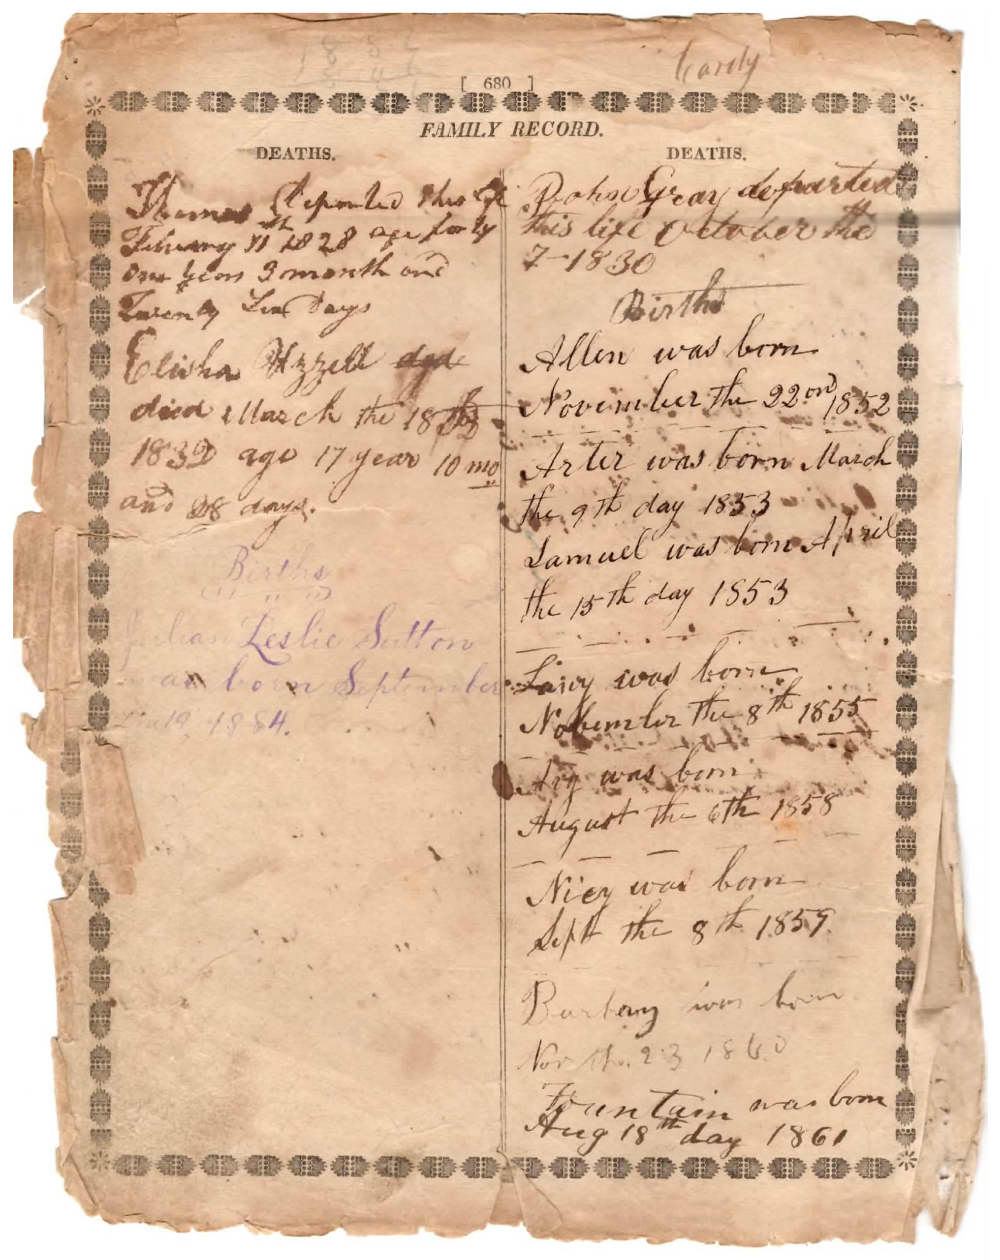 [ 680 ]
FAMILY RECORD.
DEATHS.
Thomas Departed this life
February 11th 1828 age forty
one years 3 month and
Twenty Days
Elisha Uzzell
died March the 18
1839 age 17 year 10 mo
and 28 days.
Births
Julian Leslie Sutton
was born September
the 19, 1884.
DEATHS.
Gray departed
this life October the
7 - 1830
Births
Allen was born
November the 22ond 1852
Arter was born March
the 9th day 1853
Samuel was born April
the 15th day 1853
was born
Nobember the 8th 1855
was born
August the 6th 1858
Nicy was born
Sept the 8th 1859
was born
Nov th. 23 1860
Fountain was born
Aug 18th day 1861